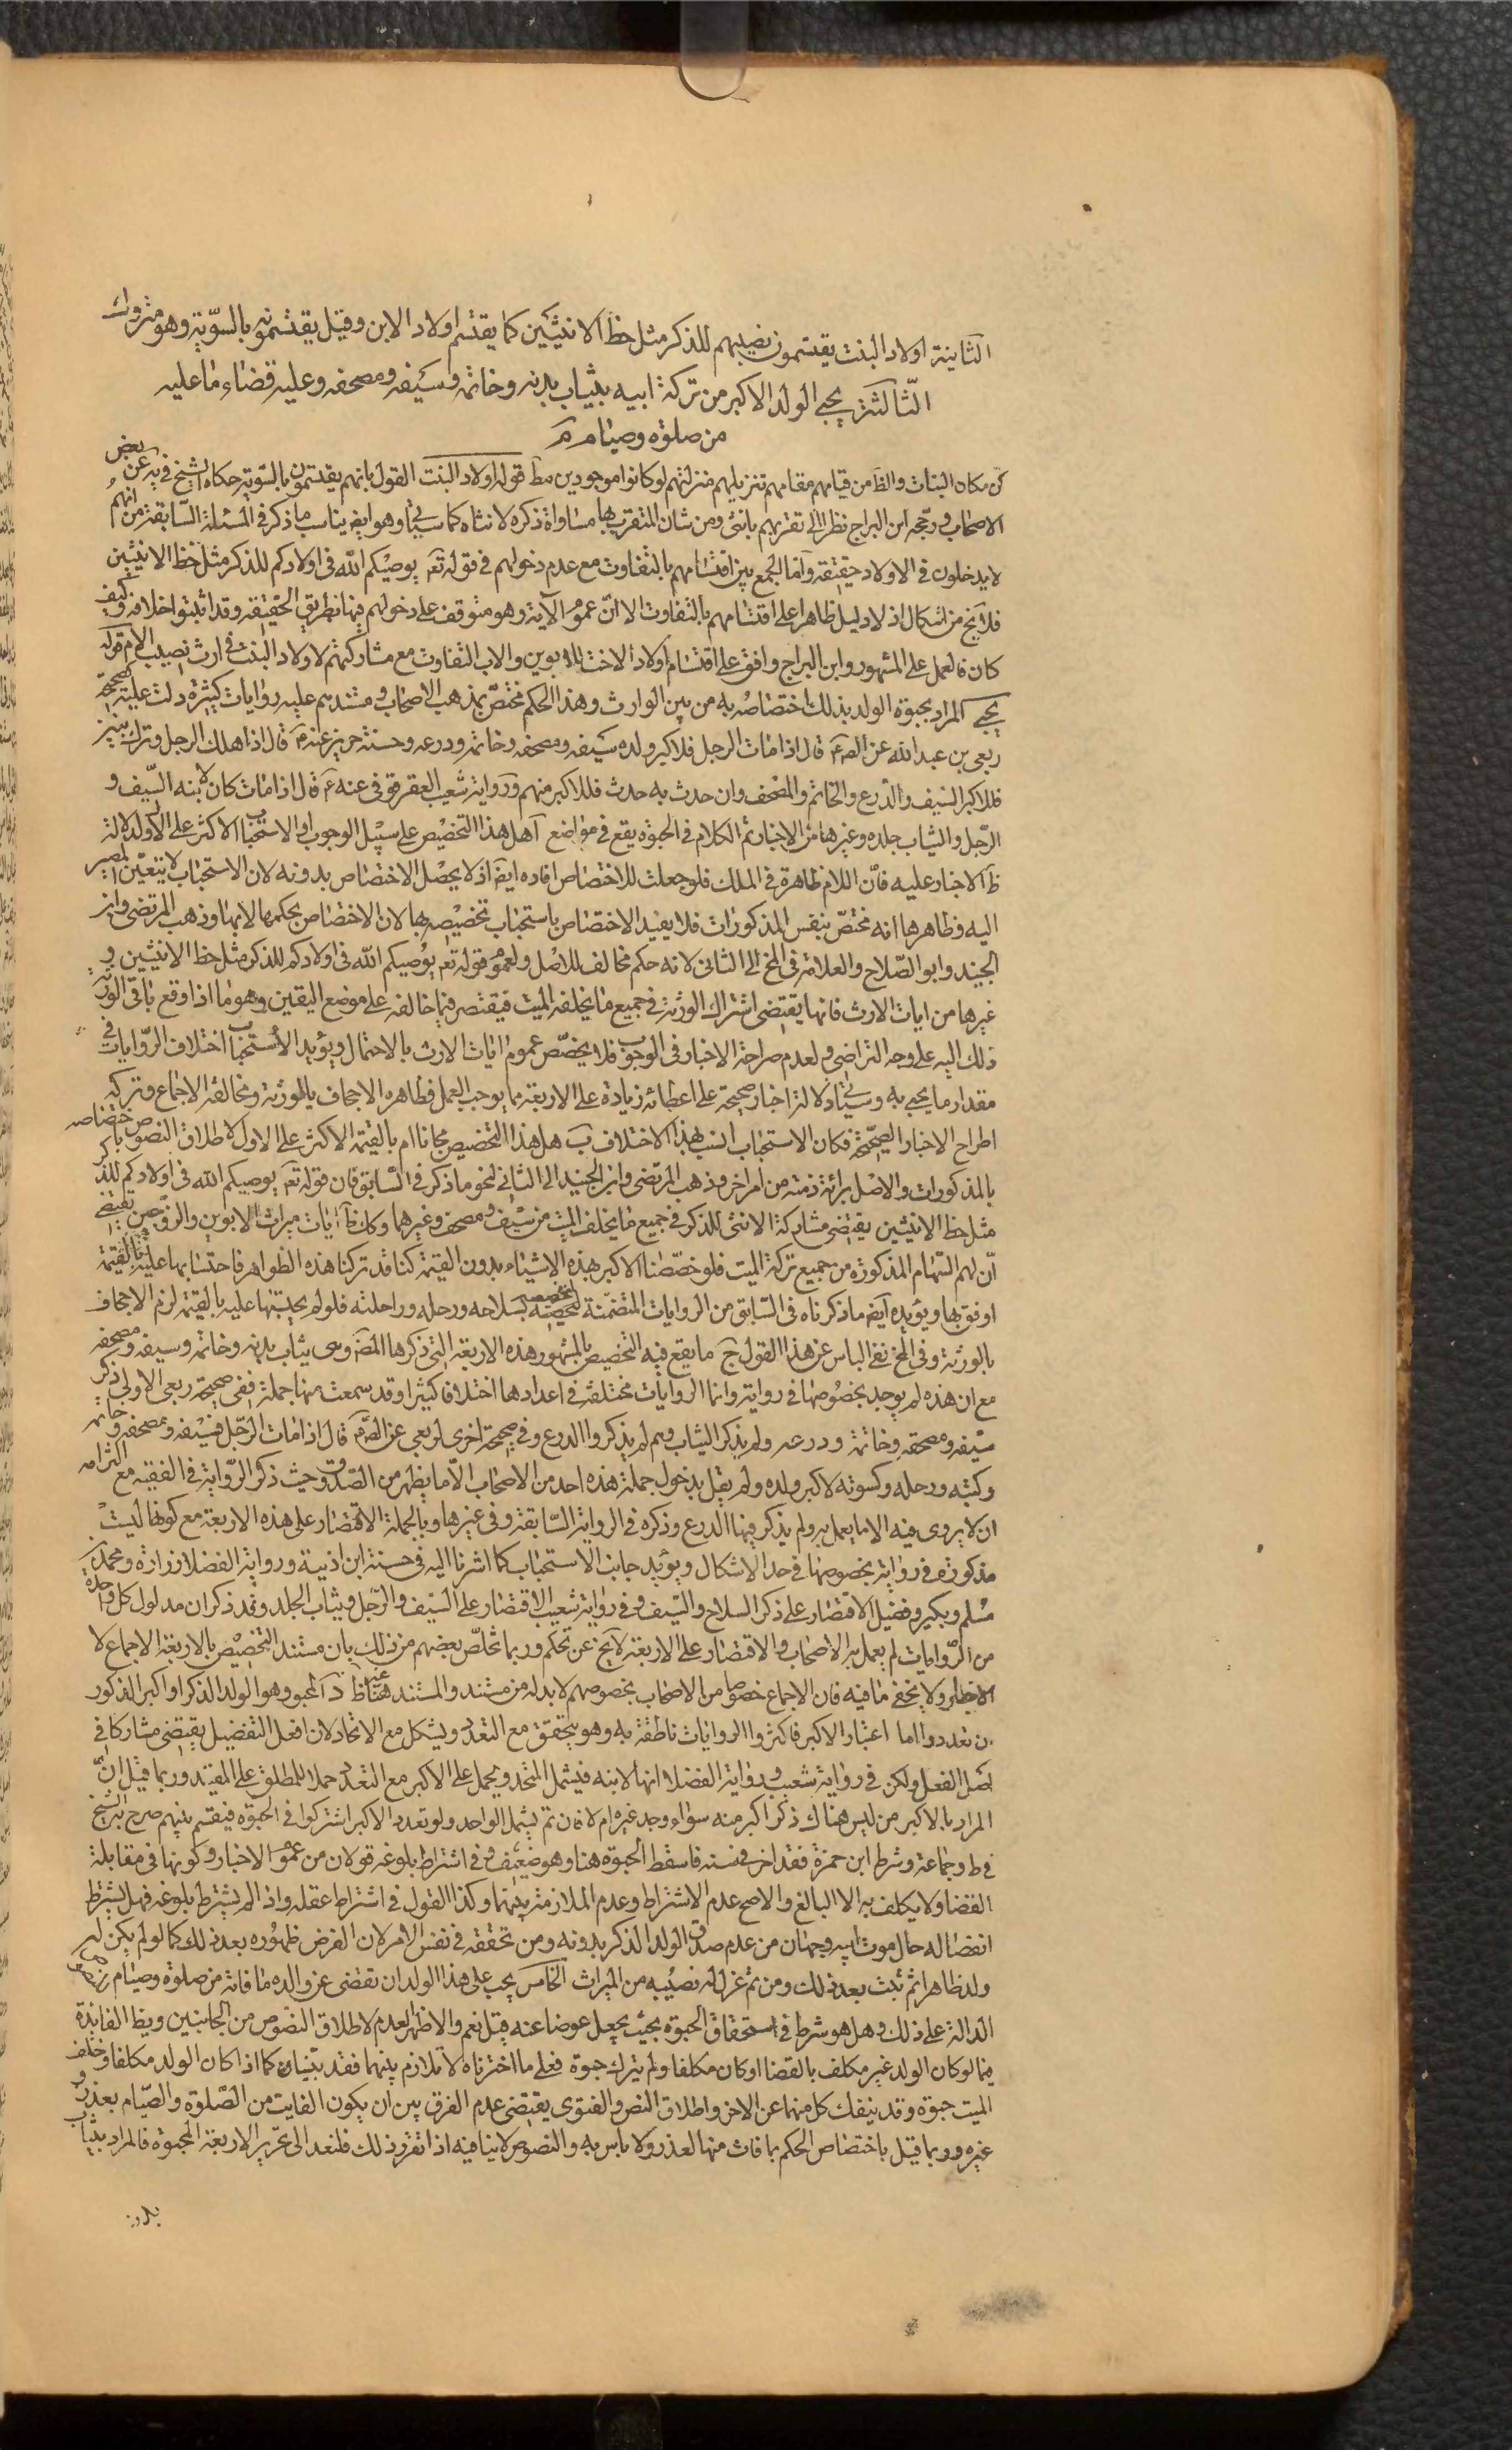 الثانية اولاد البنت يقتسمون نصيبهم للذكر مثل حظ الانثيين كما يقتسم اولاد الابن وقيل يقتسمونه بالسوية وهو متروك
الثالثة يحبى الولد الاكبر من تركة ابيه بثياب بدنه وخاتمه وسيفه ومصحفه وعليه قضاء ما عليه
من صلوة وصيام م
كن مكان البنات والظ من قيامهم مقامهم تنزيلهم منزلتهم لو كانوا موجودين مط قوله اولاد البنت القول بانهم يقتسمون بالسوية حكاه الشيخ في يه عن بعض
الاصحاب ورجحه ابن البراج نظرا الى تقربهم بانثى ومن شان المتقرب بها مساواة ذكره لانثاه كما سياتي وهو ايض يناسب ما ذكر في المسئلة السابقة من انهم
لا يدخلون في الاولاد حقيقة واما الجمع بين اقتسامهم بالتفاوت مع عدم دخولهم في قوله تع يوصيكم الله في اولادكم للذكر مثل حظ الانثيين
فلا يخ من اشكال اذ لا دليل ظاهرا على اقتسامهم بالتفاوت الا ان عموم الآية وهو متوقف على دخولهم فيها بطريق الحقيقة وقد اثبتوا خلافه وكيف
كان فالعمل على المشهور وابن البراج وافق على اقتسام اولاد الاخت للابوين والاب التفاوت مع مشاركتهم لاولاد البنت في ارث نصيب الام قوله
يحبى المراد بحبوة الولد بذلك اختصاصه به من بين الوارث وهذا الحكم مختص بمذهب الاصحاب ومستندهم عليه روايات كثيرة دلت عليه صحيحة
ربعي بن عبد الله عن الص ع قال اذا مات الرجل فلاكبر ولده سيفه ومصحفه وخاتمه ودرعه وحسنة حريز عنه ع قال اذا هلك الرجل وترك بنين
فللاكبر السيف والدرع والخاتم والمصحف وان حدث به حدث فللاكبر منهم ورواية شعيب العقرقوفي عنه ع قال اذا مات كان لابنه السيف و
الرحل والثياب جلده وغيرها من الاخبار ثم الكلام في الحبوة يقع في مواضع آ هل هذا التخصيص على سبيل الوجوب او الاستحباب الاكثر على الاول لدلالة
ظ الاخبار عليه فان اللام ظاهرة في الملك فلو جعلت للاختصاص افاده ايض اذ لا يحصل الاختصاص بدونه لان الاستحباب لا يتعين المصير
اليه وظاهرها انه مختص بنفس المذكورات فلا يفيد الاختصاص باستحباب تخصيصه بها لان الاختصاص بحكمها لا بها وذهب المرتضى وابن
الجنيد وابو الصلاح والعلامة في المخ الى الثاني لانه حكم مخالف للاصل ولعموم قوله تع يوصيكم الله في اولادكم للذكر مثل حظ الانثيين و
غيرها من ايات الارث فانها يقتضى اشتراك الورثة في جميع ما يخلفه الميت فيقتصر فيما خالفه على موضع اليقين وهو ما اذا وقع باقى الورثة
ذلك اليه على وجه التراضي ولعدم صراحة الاخبار في الوجوب فلا يخصص عموم ايات الارث بالاحتمال ويؤيد الاستحباب اختلاف الروايات في
مقدار ما يحبى به وسياتي دلالة اخبار صحيحة على اعطائه زيادة على الاربعة مما يوجب العمل فظاهره الاجحاف بالورثة ومخالفة الاجماع وتركه
اطراح الاخبار الصحيحة فكان الاستحباب انسب بهذا الاختلاف ب هل هذا التخصيص مجانا ام بالقيمة الاكثر على الاول لاطلاق النصوص باختصاصه
بالمذكورات والاصل برائة ذمته من امر اخر وذهب المرتضى وابن الجنيد الى الثاني لنحو ما ذكر في السابق فان قوله تع يوصيكم الله في اولادكم للذكر
مثل حظ الانثيين يقتضى مشاركة الانثى للذكر في جميع ما يخلف الميت من سيف ومصحف وغيرهما وكك ظ ايات ميراث الابوين والزوجين يقتضى
ان لهم السهام المذكورة من جميع تركة الميت فلو خصصنا الاكبر بهذه الاشياء بدون القيمة كنا قد تركنا هذه الظواهر فاحتسابها عليه بالقيمة
اوفق بها ويؤيده ايض ما ذكرناه في السابق من الروايات المتضمنة لتخصيصه بسلاحه ورحله وراحلته فلو لم يحسبها عليه بالقيمة لزم الاجحاف
بالورثة وفى المخ نفى الباس عن هذا القول ج ما يقع فيه التخصيص بالمشهور هذه الاربعة التى ذكرها المص وهى ثياب بدنه وخاتمه وسيفه ومصحفه
مع ان هذه لم يوجد بخصوصها في رواية وانما الروايات مختلفة في اعدادها اختلافا كثيرا وقد سمعت منها جملة ففى صحيحة ربعي الاولى ذكر
سيفه ومصحفه وخاتمه ودرعه ولم يذكر الثياب وهم لم يذكروا الدرع وفى صحيحة اخرى لربعي عن الص ع قال اذا مات الرجل فسيفه ومصحفه وخاتمه
وكتبه ورحله وكسوته لاكبر ولده ولم يقل بدخول جملة هذه احد من الاصحاب الا ما يظهر من الصدوق حيث ذكر الرواية في الفقيه مع التزامه
ان لا يروى فيه الا ما يعمل به ولم يذكر فيها الدرع وذكره في الرواية السابقة وفى غيرها وبالجملة الاقتصار على هذه الاربعة مع كونها ليست
مذكورة في رواية بخصوصها في حد الاشكال ويؤيد جانب الاستحباب كما اشرنا اليه في حسنة ابن اذينة ورواية الفضلا زرارة ومحمد بن
مسلم وبكير وفضيل الاقتصار على ذكر السلاح والسيف وفى رواية شعيب الاقتصار على السيف والرحل وثياب الجلد وقد ذكر ان مدلول كل واحدة
من الروايات لم يعمل به الاصحاب والاقتصار على الاربعة لا يخ عن تحكم وربما تخلص بعضهم من ذلك بان مستند التخصيص بالاربعة الاجماع لا
الاخبار ولا يخفى ما فيه فان الاجماع خصوصا من الاصحاب بخصوصهم لا بد له من مستند والمستند هنا غير ظ د المحبو وهو الولد الذكر او اكبر الذكور
ان تعددوا اما اعتبار الاكبر فاكثر الروايات ناطقة به وهو يتحقق مع التعدد ويشكل مع الاتحاد لان افعل التفضيل يقتضى مشاركا في
اصل الفعل ولكن في رواية شعيب ورواية الفضلا انها لابنه فيشمل المتحد ويحمل على الاكبر مع التعدد حملا للمطلق على المقيد وربما قيل ان
المراد بالاكبر من ليس هناك ذكر اكبر منه سواء وجد غيره ام لا فان تم يشمل الواحد ولو تعدد الاكبر اشتركوا في الحبوة فيقسم بينهم صرح به الشيخ
في ط وجماعة وشرط ابن حمزة فقد اخر في سنه فاسقط الحبوة هنا وهو ضعيف وفى اشتراط بلوغه قولان من عموم الاخبار وكونها في مقابلة
القضا ولا يكلف به الا البالغ والاصح عدم الاشتراط وعدم الملازمة بينهما وكذا القول في اشتراط عقله واذا لم يشترط بلوغه فهل يشترط
انفصاله حال موت ابيه وجهان من عدم صدق الولد الذكر بدونه ومن تحققه في نفس الامر لان الفرض ظهوره بعد ذلك كما لو لم يكن له
ولد ظاهرا ثم ثبت بعد ذلك ومن ثم عزل له نصيبه من الميراث الخامس يجب على هذا الولد ان يقضى عن والده ما فاته من صلوة وصيام
الدالة على ذلك وهل هو شرط في استحقاق الحبوة بحيث يجعل عوضا عنه قيل نعم والاظهر العدم لاطلاق النصوص من الجانبين ويظ الفائدة
فيما لو كان الولد غير مكلف بالقضا او كان مكلفا ولم يترك حبوة فعلى ما اخترناه لا تلازم بينهما فقد يثبتان كما اذا كان الولد مكلفا وخلف
الميت حبوة وقد ينفك كل منهما عن الاخر واطلاق النص والفتوى يقتضى عدم الفرق بين ان يكون الفايت من الصلوة والصيام بعذر و
غيره وربما قيل باختصاص الحكم بما فات منها لعذر ولا باس به والنصوص لا ينافيه اذا تقرر ذلك فلنعد الى تحرير الاربعة المحبوة فالمراد بثياب
بدن